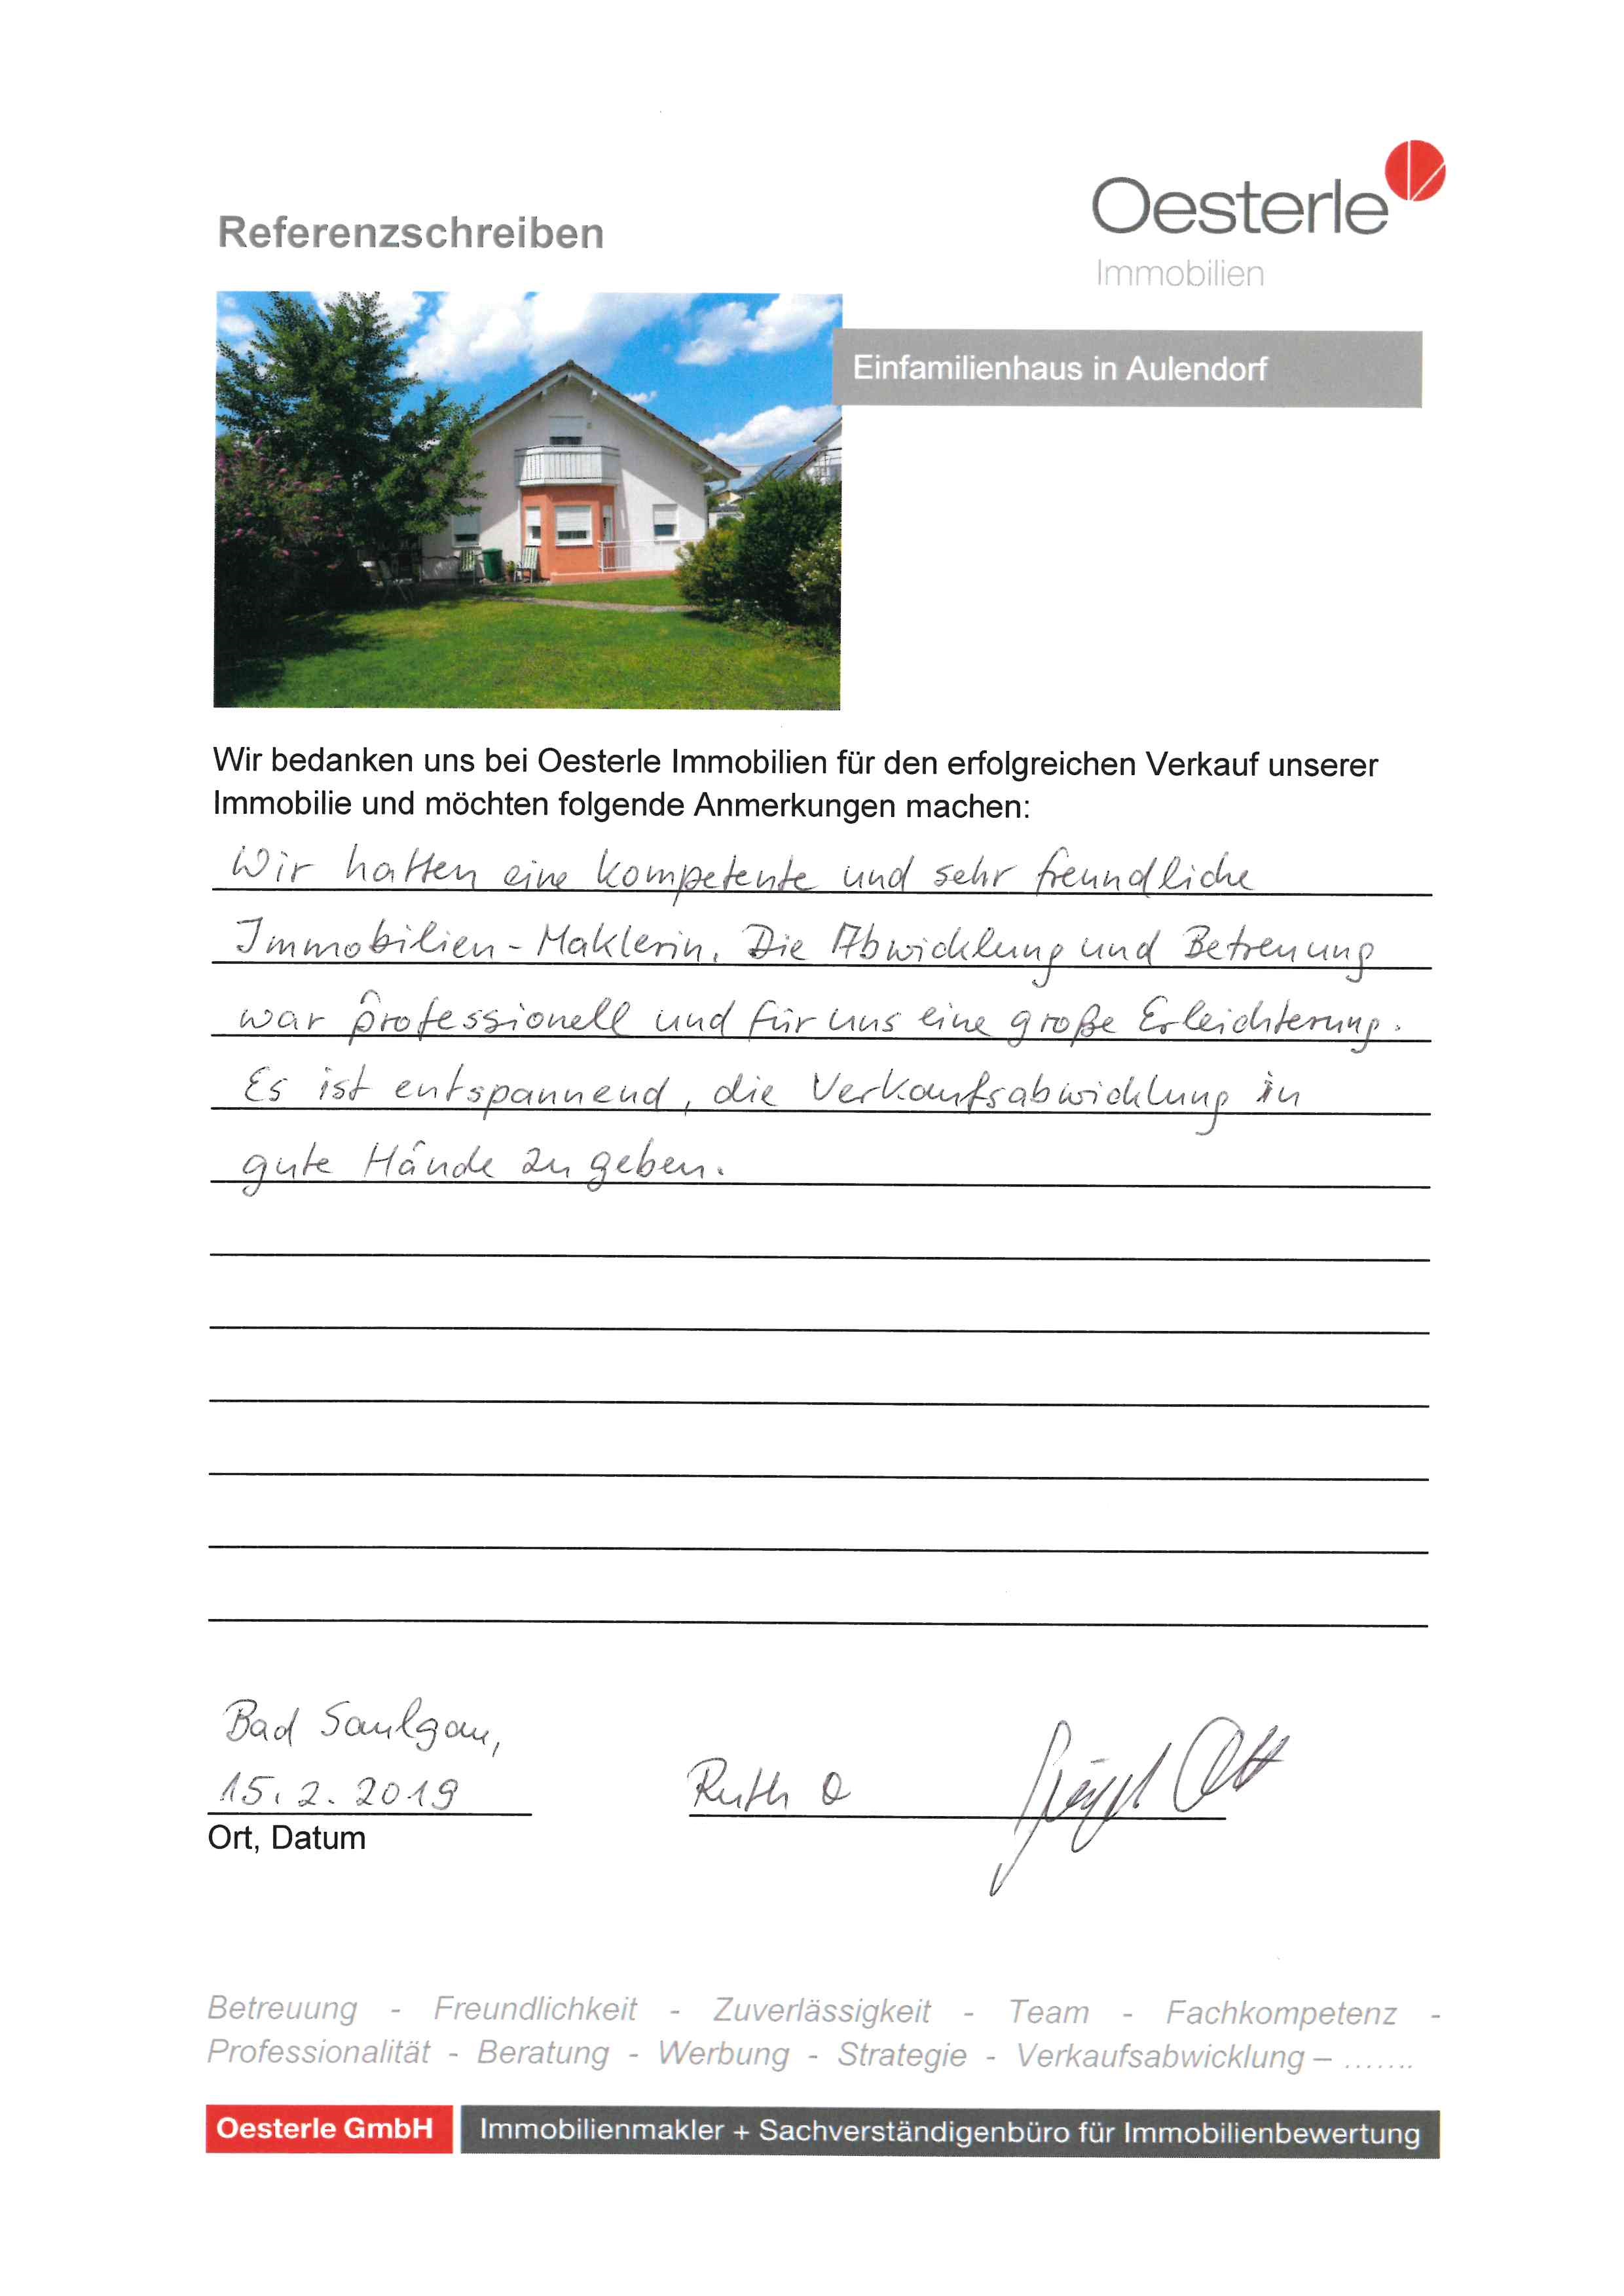 Referenzschreiben
Oesterle
Immobilien
Einfamilienhaus in Aulendorf
Wir bedanken uns bei Oesterle Immobilien für den erfolgreichen Verkauf unserer
Immobilie und möchten folgende Anmerkungen machen:
Wir hatten eine kompetente und sehr freundliche
Immobilien-Maklerin. Die Abwicklung und Betreuung
war professionell und für uns eine große Erleichterung.
Es ist entspannend, die Verkaufsabwicklung in
gute Hände zu geben.
Bad Saulgau,
15.2.2019
Ruth O
Ott
Ort, Datum
Betreuung - Freundlichkeit - Zuverlässigkeit - Team - Fachkompetenz -
Professionalität - Beratung - Werbung - Strategie - Verkaufsabwicklung – .......
Oesterle GmbH
Immobilienmakler + Sachverständigenbüro für Immobilienbewertung